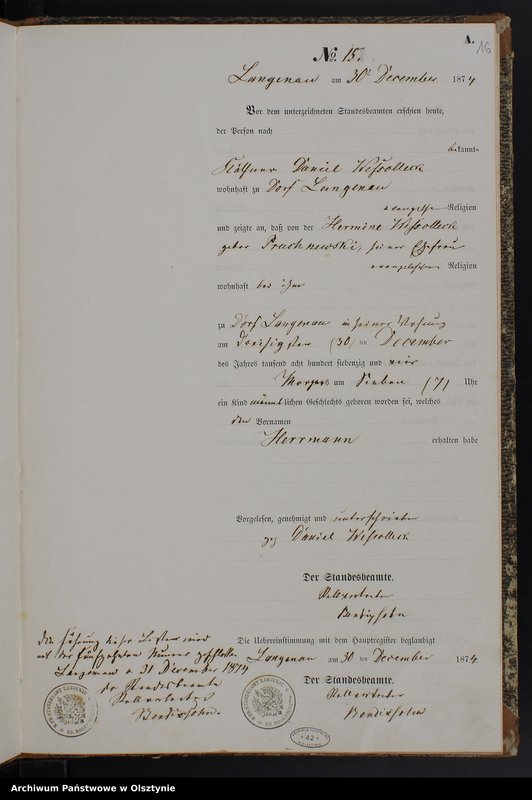 A.
16
No. 15.
Langenau am 30t December 1874
Vor dem unterzeichneten Standesbeamten erschien heute,
der Persönlichkeit nach
bekannt
Käthner Daniel Wessolleck
wohnhaft zu Dorf Langenau
evangelischer Religion
und zeigte an, daß von der Hermine Wessolleck
geborne Pruchnewski, seiner Ehefrau
evangelischer Religion
wohnhaft bei ihm
zu Dorf Langenau in seiner Wohnung
am dreißigsten (30) ten December
des Jahres tausend acht hundert siebenzig und vier
Morgens um Sieben (7) Uhr
ein Kind männlichen Geschlechts geboren worden sei, welches
den Vornamen
Herrmann erhalten habe
Vorgelesen, genehmigt und unterschrieben
gez Daniel Wessolleck
Der Standesbeamte.
Stellvertreter
Bendissohn
Die Uebereinstimmung mit dem Hauptregister beglaubigt
Langenau am 30 ten December 1874
Der Standesbeamte.
Stellvertreter
Bendissohn
mit der fünfzehnten Numer geschlossen
Langenau d 31 December 1874
der Standesbeamte
Stellvertreter
Bendissohn.
42
Archiwum Państwowe w Olsztynie